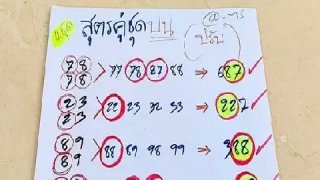 สูตรคู่ชุดบน
78
78 > 77 78 27 88 → 687
23
23 > 22 23 32 33 → 227
89
89 > 88 89 98 99 → 388